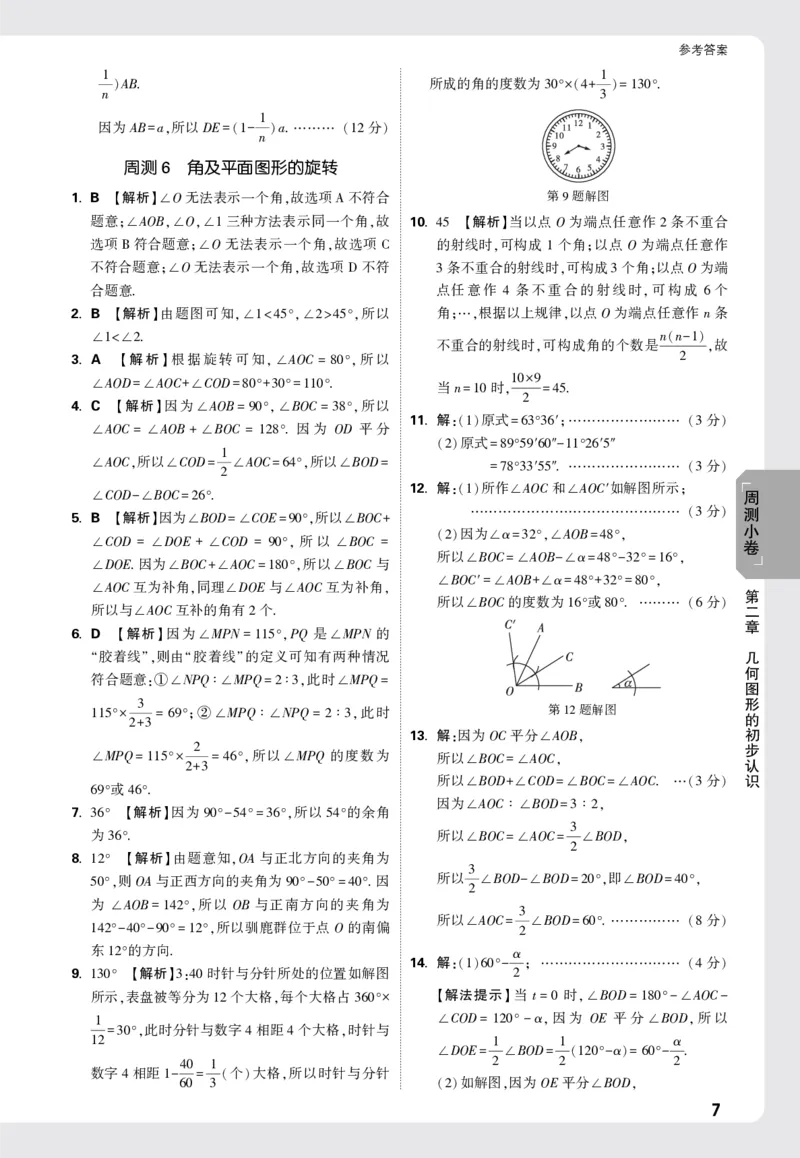 参考答案
1/n)AB.
因为 AB=a,所以 DE=(1-1/n)a. ……… (12 分)
周测 6 角及平面图形的旋转
1. B 【解析】∠O 无法表示一个角,故选项 A 不符合
题意;∠AOB,∠O,∠1 三种方法表示同一个角,故
选项 B 符合题意;∠O 无法表示一个角,故选项 C
不符合题意;∠O 无法表示一个角,故选项 D 不符
合题意.
2. B 【解析】由题图可知,∠1<45°,∠2>45°,所以
∠1<∠2.
3. A 【解析】根据旋转可知,∠AOC = 80°,所以
∠AOD=∠AOC+∠COD=80°+30°=110°.
4. C 【解析】因为∠AOB=90°,∠BOC=38°,所以
∠AOC = ∠AOB + ∠BOC = 128°. 因为 OD 平分
∠AOC,所以∠COD=1/2∠AOC=64°,所以∠BOD=
∠COD-∠BOC=26°.
5. B 【解析】因为∠BOD=∠COE=90°,所以∠BOC+
∠COD = ∠DOE + ∠COD = 90°, 所以 ∠BOC =
∠DOE. 因为∠BOC+∠AOC=180°,所以∠BOC 与
∠AOC 互为补角,同理∠DOE 与∠AOC 互为补角,
所以与∠AOC 互补的角有 2 个.
6. D 【解析】因为∠MPN=115°,PQ 是∠MPN 的
“胶着线”,则由“胶着线”的定义可知有两种情况
符合题意:①∠NPQ∶∠MPQ=2∶3,此时∠MPQ=
115°×3/(2+3)=69°;②∠MPQ∶∠NPQ=2∶3,此时
∠MPQ=115°×2/(2+3)=46°,所以∠MPQ 的度数为
69°或 46°.
7. 36° 【解析】因为 90°-54°=36°,所以 54°的余角
为 36°.
8. 12° 【解析】由题意知,OA 与正北方向的夹角为
50°,则 OA 与正西方向的夹角为 90°-50°=40°. 因
为 ∠AOB=142°,所以 OB 与正南方向的夹角为
142°-40°-90°=12°,所以驯鹿群位于点 O 的南偏
东 12°的方向.
9. 130° 【解析】3:40 时针与分针所处的位置如解图
所示,表盘被等分为 12 个大格,每个大格占 360°×
1/12=30°,此时分针与数字 4 相距 4 个大格,时针与
数字 4 相距 1-40/60=1/3(个)大格,所以时针与分针
所成的角的度数为 30°×(4+1/3)=130°.
12 1 2 3 4 5 6 7 8 9 10 11
第 9 题解图
10. 45 【解析】当以点 O 为端点任意作 2 条不重合
的射线时,可构成 1 个角;以点 O 为端点任意作
3 条不重合的射线时,可构成 3 个角;以点 O 为端
点任意作 4 条不重合的射线时,可构成 6 个
角;…,根据以上规律,以点 O 为端点任意作 n 条
不重合的射线时,可构成角的个数是n(n-1)/2,故
当 n=10 时,10×9/2=45.
11. 解:(1)原式=63°36′;…………………… (3 分)
(2)原式=89°59′60″-11°26′5″
=78°33′55″. …………………… (3 分)
12. 解:(1)所作∠AOC 和∠AOC′如解图所示;
……………………………………… (3 分)
(2)因为∠α=32°,∠AOB=48°,
所以∠BOC=∠AOB-∠α=48°-32°=16°,
∠BOC′=∠AOB+∠α=48°+32°=80°,
所以∠BOC 的度数为 16°或 80°. ……… (6 分)
C′ A
C
O B α
第 12 题解图
13. 解:因为 OC 平分∠AOB,
所以∠BOC=∠AOC,
所以∠BOD+∠COD=∠BOC=∠AOC. …(3 分)
因为∠AOC∶∠BOD=3∶2,
所以∠BOC=∠AOC=3/2∠BOD,
所以3/2∠BOD-∠BOD=20°,即∠BOD=40°,
所以∠AOC=3/2∠BOD=60°. …………… (8 分)
14. 解:(1)60°-α/2; ………………………… (4 分)
【解法提示】当 t=0 时,∠BOD=180°-∠AOC-
∠COD = 120° - α,因为 OE 平分∠BOD,所以
∠DOE=1/2∠BOD=1/2(120°-α)=60°-α/2.
(2)如解图,因为 OE 平分∠BOD,
周测小卷
第二章 几何图形的初步认识
7